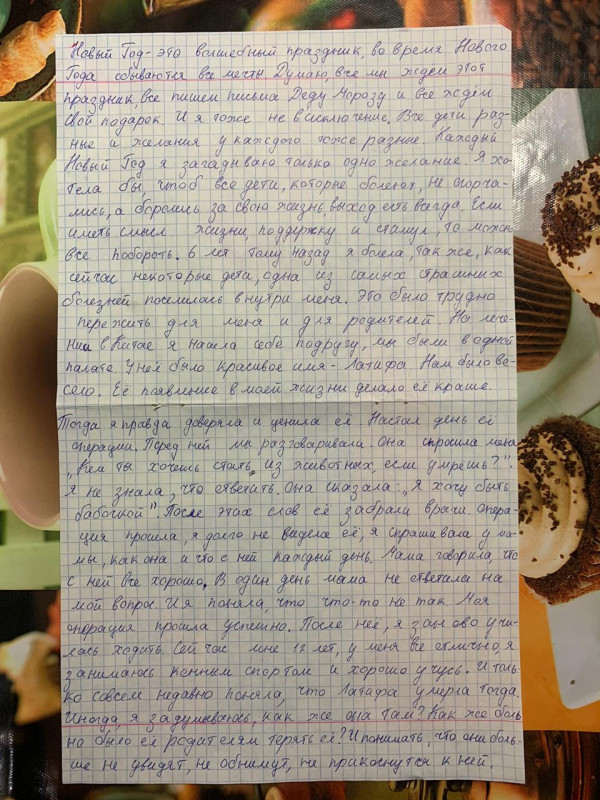 Новый Год - это волшебный праздник, во время Нового
Года сбываются все мечты. Думаю, все мы ждём этот
праздник, все пишем письма Деду Морозу и все ждём
свой подарок. И я тоже не в исключение. Все дети раз-
ные и желания у каждого тоже разные. Каждый
Новый Год я загадываю только одно желание. Я хо-
тела бы, чтоб все дети, которые болеют, не огорча-
лись, а боролись за свою жизнь, выход есть всегда. Если
иметь смысл жизни, поддержку и стимул, то можно
все побороть. 6 лет тому назад я болела, так же, как
сейчас некоторые дети, одна из самых страшных
болезней поселилась внутри меня. Это было трудно
пережить для меня и для родителей. На лече-
нии в Китае я нашла себе подругу, мы были в одной
палате. У неё было красивое имя - Латифа. Нам было ве-
село. Её появление в моей жизни делало её краше.
Тогда я правда доверяла и ценила её. Настал день её
операции. Перед ней мы разговаривали. Она спросила меня
„Кем ты хочешь стать, из животных, если умрешь?".
Я не знала, что ответить. Она сказала: „Я хочу быть
бабочкой". После этих слов её забрали врачи. Опера-
ция прошла, я долго не видела её, я спрашивала у ма-
мы, как она и что с ней каждый день. Мама говорила, что
с ней все хорошо. В один день мама не ответила на
мой вопрос. И я поняла, что что-то не так. Моя
операция прошла успешно. После неё, я заново учи-
лась ходить. Сейчас мне 12 лет, у меня все отлично, я
занимаюсь конным спортом и хорошо учусь. И толь-
ко совсем недавно поняла, что Латифа умерла тогда.
Иногда, я задумываюсь, как же она там? Как же боль
но было её родителям терять её? И понимать, что они боль-
ше не увидят, не обнимут, не прикоснутся к ней.